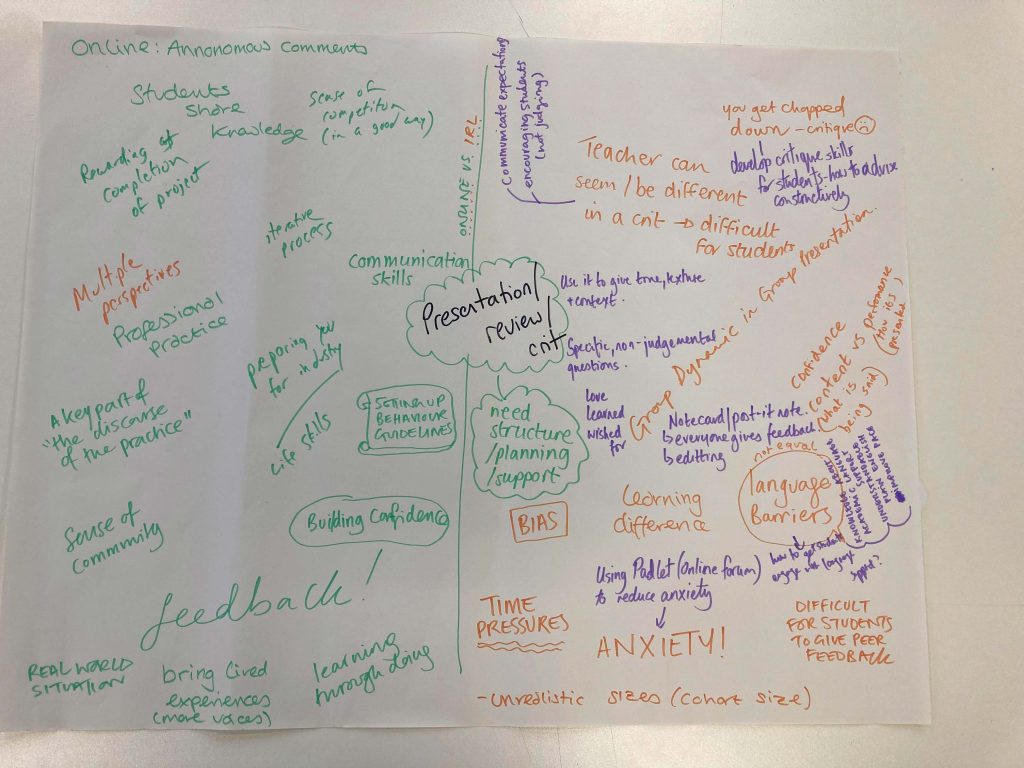 Online: Annonomous comments
Students
share
knowledge
sense of
competition
(in a good way)
Rewarding of
completion
of project
iterative
process
communication
skills
Multiple
perspectives
Professional
practice
preparing you
for industry
life skills
A key part of
"the discourse
of the practice"
SETTING UP
BEHAVIOUR
GUIDELINES
Sense of
community
Building Confidence
feedback!
REAL WORLD
SITUATION
bring lived
experiences
(more voices)
learning
through doing
ONLINE VS. IRL
Presentation/
review/
crit
need
structure
/planning
/support
communicate expectation
encouraging students
(not judging)
Teacher can
seem/be different
in a crit → difficult
for students
you get chopped
down - critique
develop critique skills
for students - how to advise
constructively
Use it to give tone, texture
+ context.
Specific, non-judgemental
questions.
love
learned
wished
for
Group Dynamic in Group Presentation.
Notecard/post-it note.
everyone gives feedback
editing
confidence
content vs performance
(what is
being said)
(how it's
presented
not equal
language
Barriers
KNOWLEDGE ABOUT
ACADEMIC LANGUAGE
SUPPORT
UNDERSTANDABLE
PLAIN ENGLISH
improve pace
how to get students
engage with language
support?
BIAS
Learning
difference
Using Padlet (online forum)
to reduce anxiety
ANXIETY!
TIME
PRESSURES
DIFFICULT
FOR STUDENTS
TO GIVE PEER
FEEDBACK
- unrealistic sizes (cohort size)